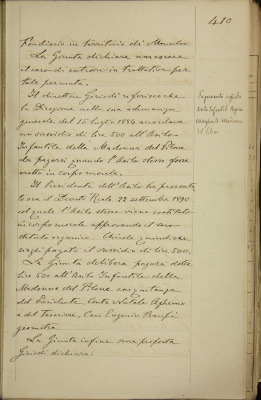 410
Fondiario in territorio di Moncalvo.
La Giunta dichiara non essere
il caso di entrare in trattative per
tale permuta.
Il direttore Giriodi riferisce che
la Direzione nella sua adunanza
generale del 15 luglio 1884 accordava
un sussidio di lire 500 all'Asilo
Infantile della Madonna del Pilone
da pagarsi quando l'Asilo stesso fosse
eretto in corpo morale.
Il Presidente dell'Asilo ha presenta
to ora il Decreto Reale 22 settembre 1890
col quale l'Asilo stesso viene costituito
in corpo morale approvandone il suo
statuto organico. Chiede quindi che
venga pagato il sussidio di lire 500.
La Giunta delibera pagarsi dette
lire 500 all'Asilo Infantile della
Madonna del Pilone con quitanza
del Presidente Conte Natale
e del Tesoriere, Cav. Eugenio
geometra.
La Giunta infine su proposta
Giriodi dichiara:
Pagamento sussidio
Asilo Infantile
Madonna
del Pilone